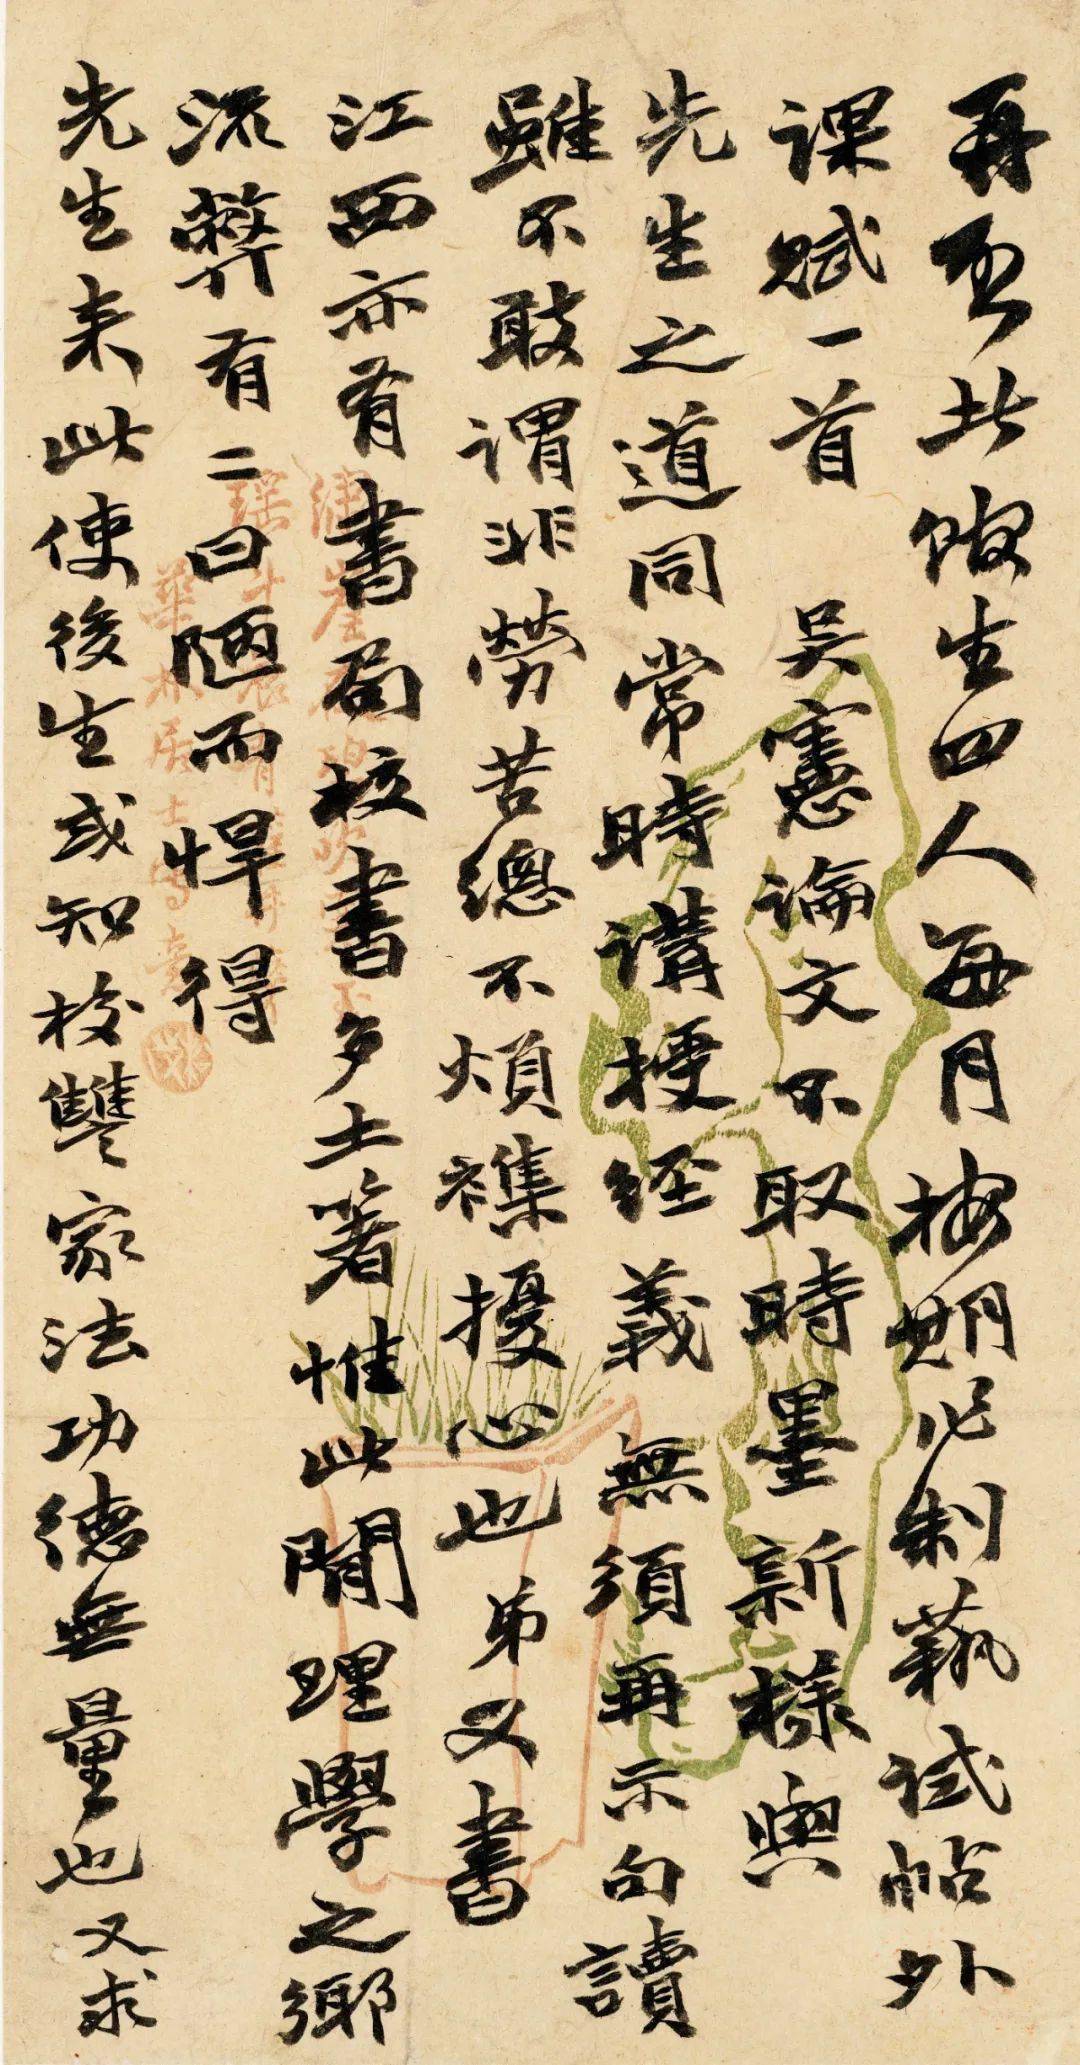 再者此館生四人每月按期作制藝試帖外
課賦一首 吳憲論文不取時墨新樣與
先生之道同常時講授經義無須再示句讀
雖不敢謂非勞苦總不煩襍擾心也弟又書
江西亦有書局校書多土著惟此間理學之鄉
流弊有二曰陋而悍得
先生來此使後生或知校讐家法功德無量也又求